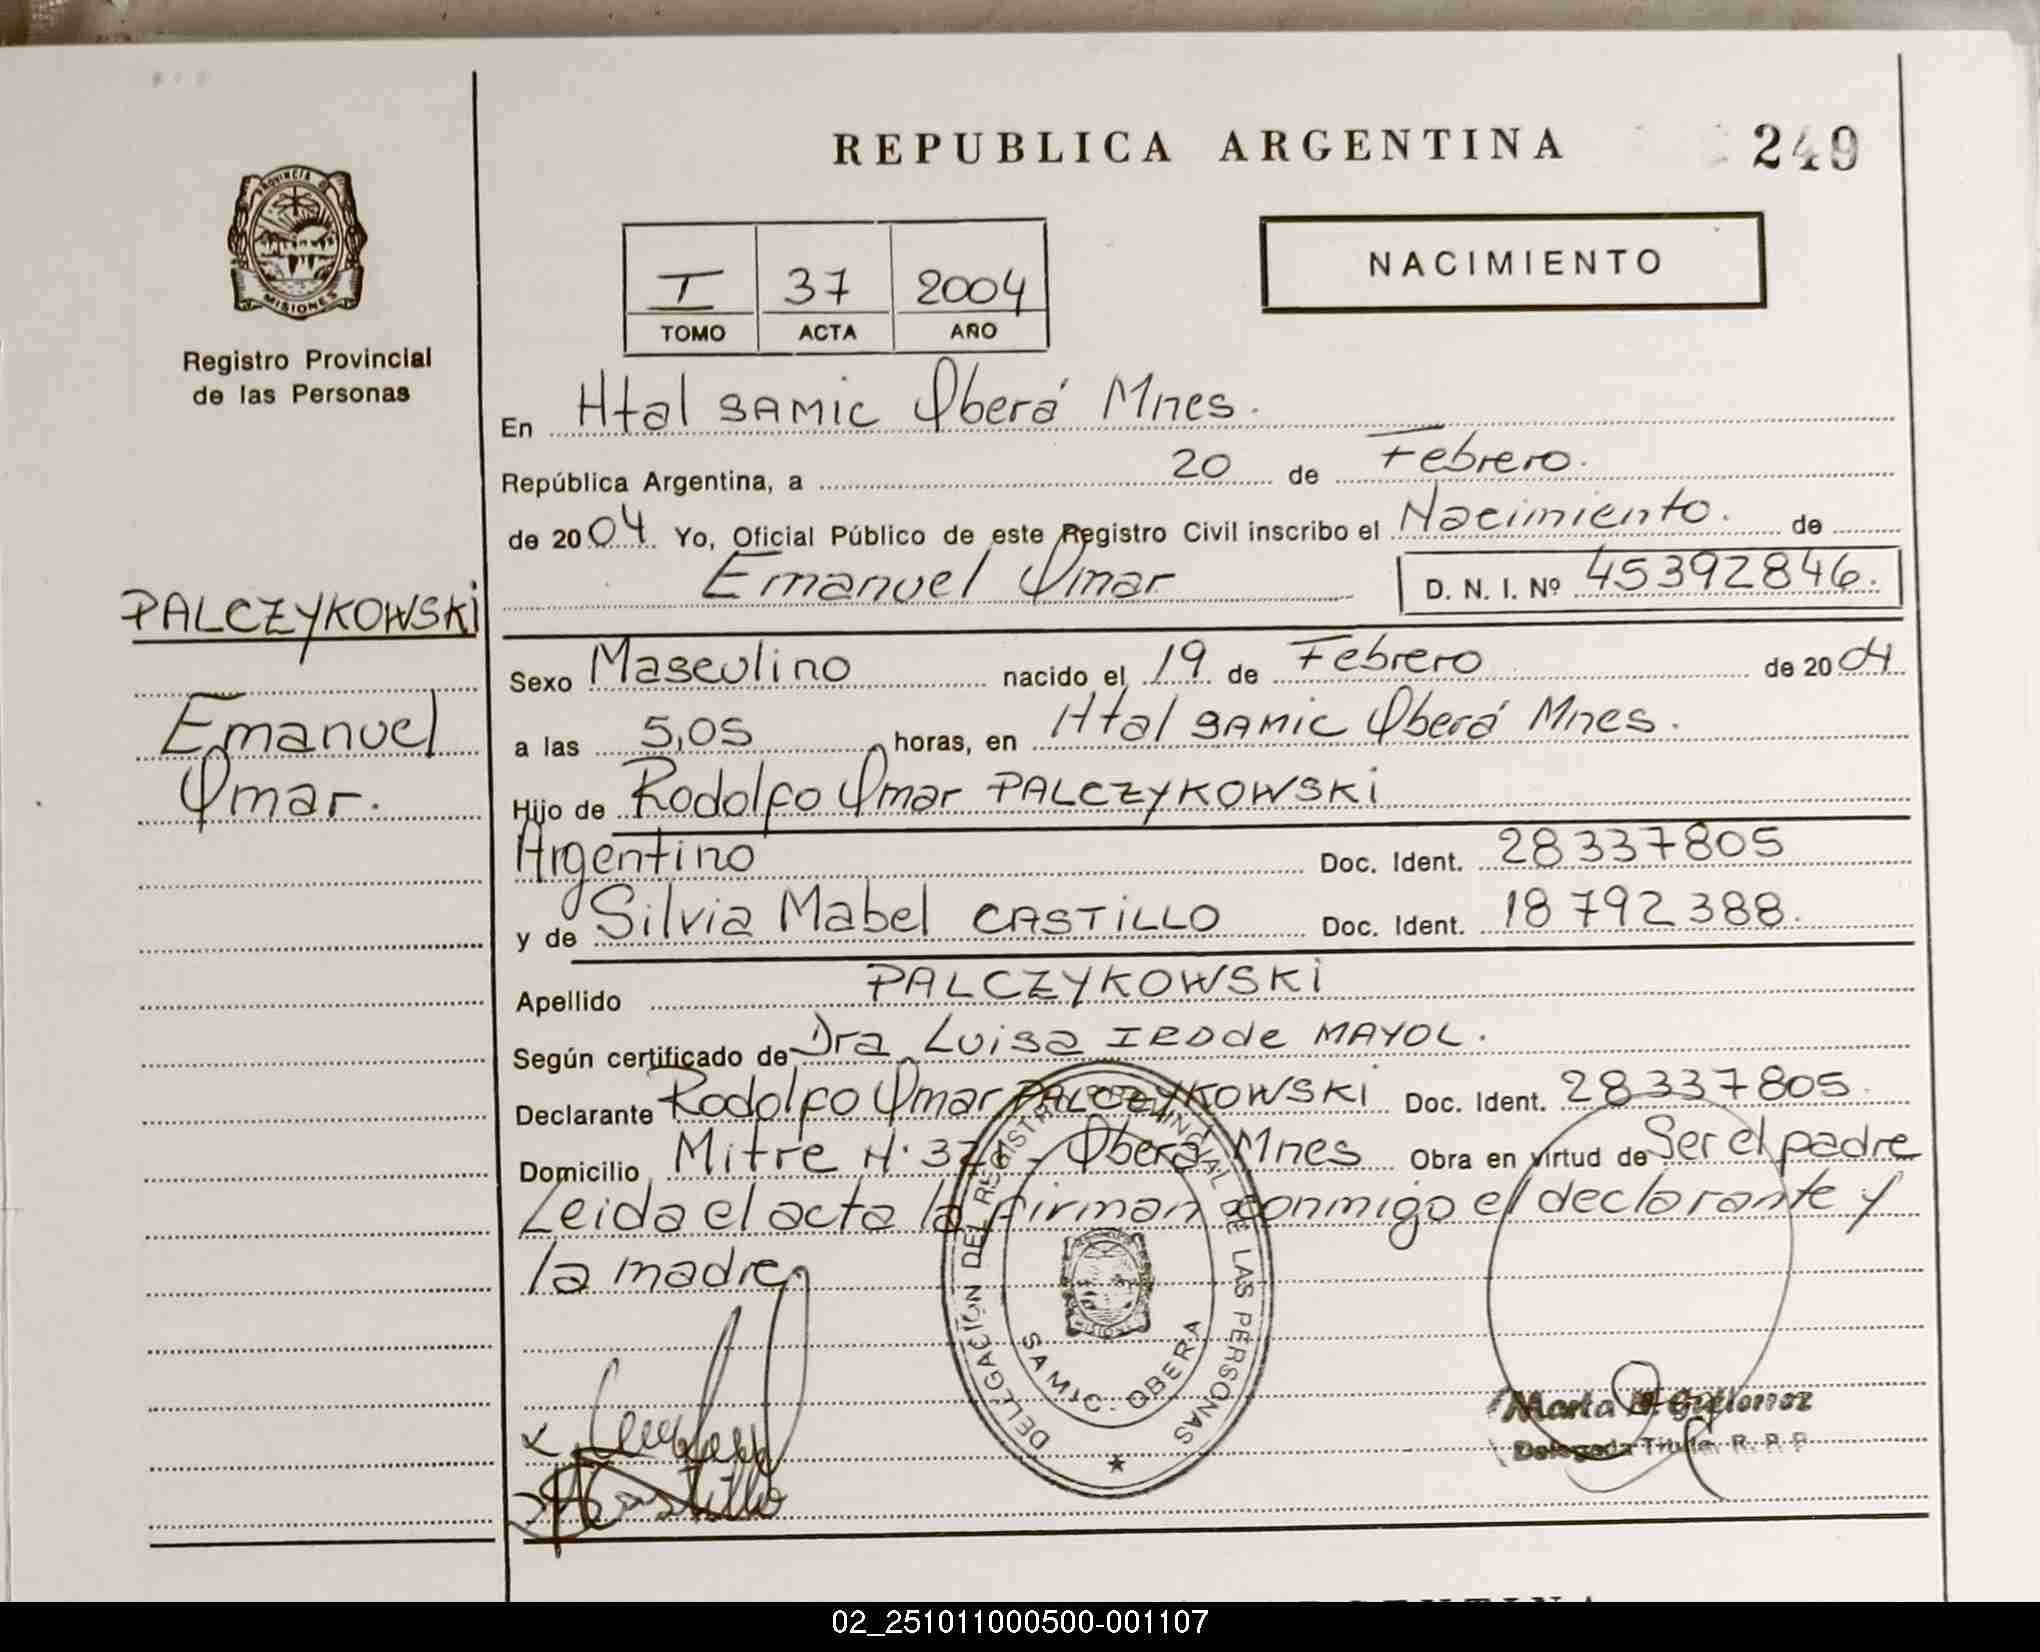 REPUBLICA ARGENTINA
249
PROVINCIA DE
MISIONES
Registro Provincial
de las Personas
I 37 2004
TOMO ACTA AÑO
NACIMIENTO
En Htal SAMIC Oberá Mnes.
República Argentina, a 20 de Febrero.
de 2004. Yo, Oficial Público de este Registro Civil inscribo el Nacimiento. de
Emanuel Omar D. N. I. Nº 45392846.
PALCZYKOWSKi
Emanuel
Omar.
Sexo Masculino nacido el 19 de Febrero de 2004
a las 5,05 horas, en Htal SAMIC Oberá Mnes.
Hijo de Rodolfo Omar PALCZYKOWSKi
Argentino Doc. Ident. 28337805
y de Silvia Mabel CASTiLLO Doc. Ident. 18792388.
Apellido PALCZYKOWSKi
Según certificado de Dra Luisa de MAYOL.
Declarante Rodolfo Omar PALCZYKOWSKi Doc. Ident. 28337805.
Domicilio Mitre Oberá Mnes Obra en virtud de Ser el padre
Leida el acta la firman conmigo el declarante y
la madre.
DELEGACIÓN DEL REGISTRO PROVINCIAL DE LAS PERSONAS
SAMIC. OBERA
Castillo
Marta Gutierrez
Delegada Titular R. P. P
02_251011000500-001107